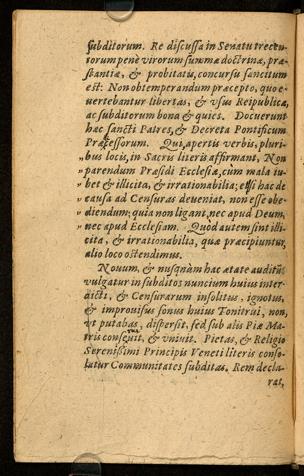 subditorum. Re discussa in Senatu trecen-
torum penè virorum summæ doctrinæ, præ-
stantiæ, & probitatis, concursu sancitum
est: Non obtemperandum præcepto, quo e-
uertebantur libertas, & vsus Reipublicæ,
ac subditorum bona & quies. Docuerunt
hac sancti Patres, & Decreta Pontificum
Præcessorum. Qui, apertis verbis, pluri-
bus locis, in Sacris literis affirmant, Non
„ parendum Præsidi Ecclesiæ, cum mala iu-
„ bet & illicita, & irrationabilia; etsi hac de
„ causa ad Censuras deueniat, non esse obe-
„ diendum; quia non ligant, nec apud Deum,
„ nec apud Ecclesiam. Quòd autem sint illi-
cita, & irrationabilia, quæ præcipiuntur,
alio loco ostendimus.
Nouum, & nusquàm hac ætate auditũ
vulgatur in subditos nuncium huius inter-
dicti, & Censurarum insolitus, ignotus,
& improuisus sonus huius Tonitrui, non,
vt putabas, dispersit, sed sub alis Piæ Ma-
tris conseruit, & vniuit. Pietas, & Religio
Serenissimi Principis Veneti literis conso-
latur Communitates subditas. Rem decla-
rat,